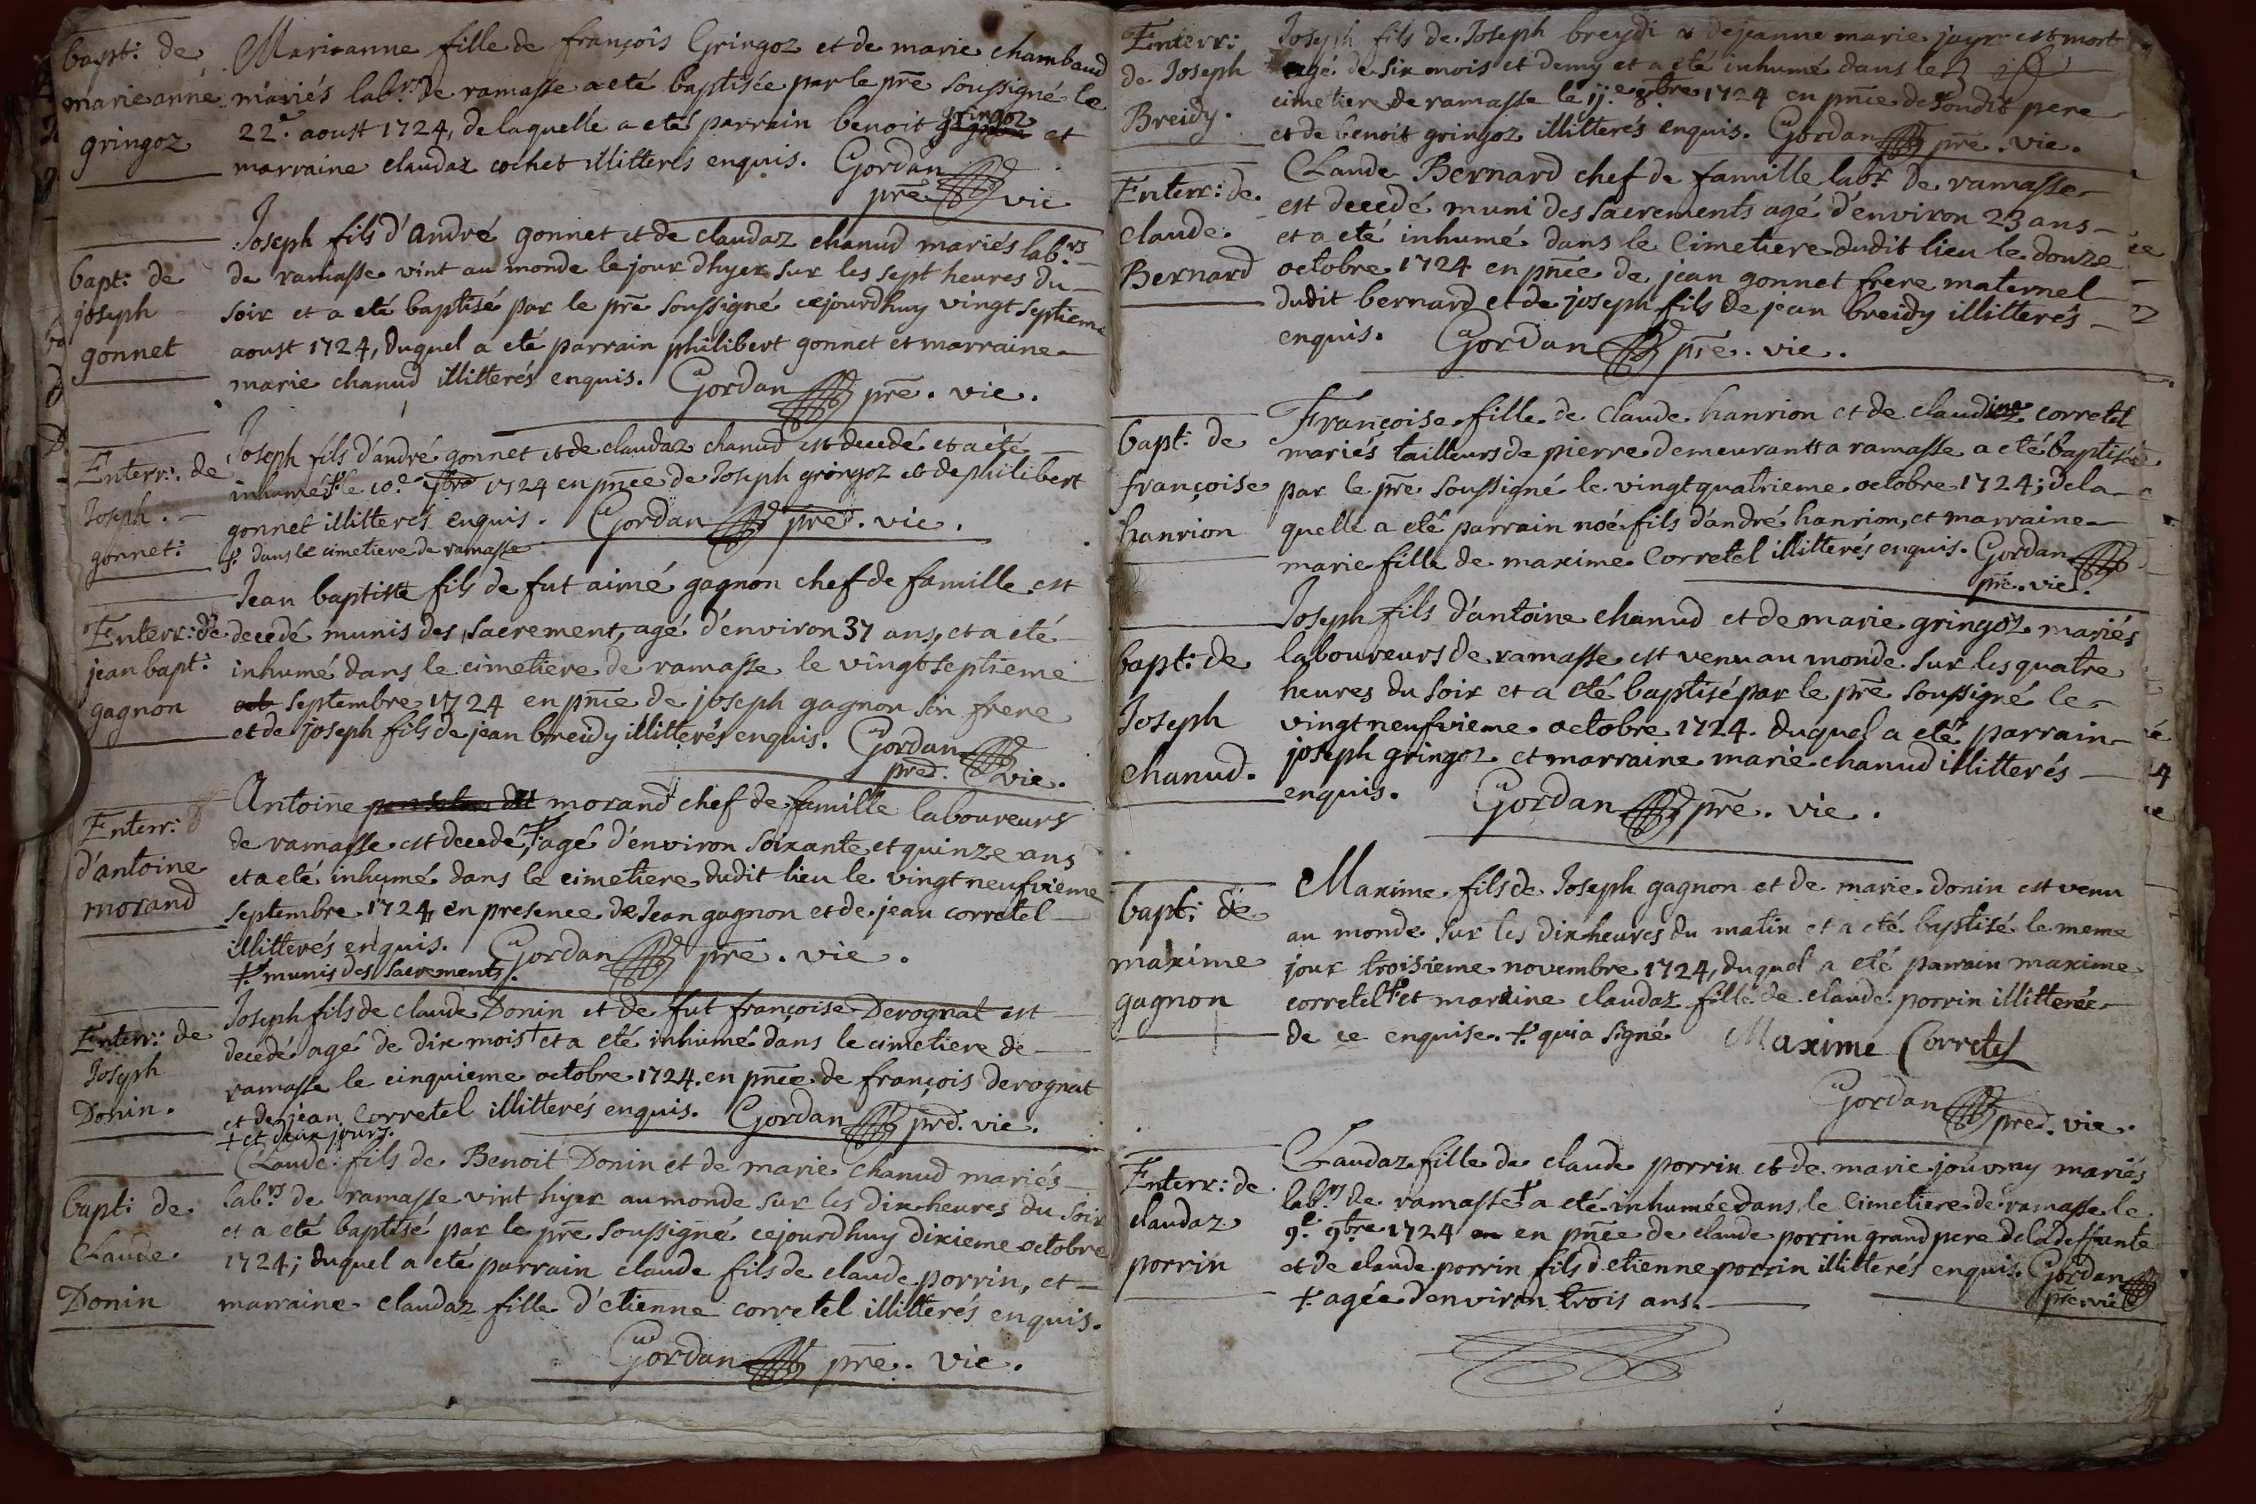 bapt: de
marieanne
gringoz
Marieanne fille de françois Gringoz et de marie chambaud
mariés labrs de ramasse a eté baptisée par le pre soussigné le
22e. aoust 1724, de laquelle a eté parrain benoit gringoz et
marraine claudaz cochet illitterés enquis. Gordan
pre vic
bapt: de
joseph
gonnet
Joseph fils d'andré gonnet et de claudaz chanud mariés labrs
de ramasse vint au monde le jour dhyer sur les sept heures du
soir et a eté baptisé par le pre soussigné cejourdhuy vingt septieme
aoust 1724, duquel a eté parrain philibert gonnet et marraine
marie chanud illitterés enquis. Gordan pre. vic.
Enterr: de
Joseph.
gonnet:
Joseph fils d'andré gonnet et de claudaz chanud est decedé et a eté
inhumé + le 10e 7bre 1724 en pnce de Joseph gringoz et de philibert
gonnet illitterés enquis. Gordan pre. vic.
+. dans le cimetiere de ramasse
Enterr: de
jean bapt:
gagnon
Jean baptiste fils de fut aimé gagnon chef de famille est
decedé munis des sacrement, agé d'environ 37 ans, et a eté
inhumé dans le cimetiere de ramasse le vingt septieme
oct septembre 1724 en pnce de joseph gagnon son frere
et de joseph fils de jean breidy illitterés enquis. Gordan
pred. vic.
Enterr:
d'antoine
morand
Antoine morand chef de famille laboureurs
de ramasse est decedé,+ agé d'environ soixante et quinze ans
et a eté inhumé dans le cimetiere dudit lieu le vingt neufvieme
septembre 1724, en presence de Jean gagnon et de jean corretel
illitterés enquis. Gordan pre. vic.
+. munis des sacrements.
Enterr: de
Joseph
Donin.
Joseph fils de claude Donin et de fut françoise Derognat est
decedé agé de dix mois + et a eté inhumé dans le cimetiere de
ramasse le cinquieme octobre 1724. en pnce de françois derognat
et de jean Corretel illitterés enquis. Gordan prd. vic.
+ et deux jours.
bapt: de
Claude
Donin
Claude fils de Benoit Donin et de marie chanud mariés
labrs de ramasse vint hyer au monde sur les dix heures du soir
et a eté baptisé par le pre soussigné cejourdhuy dixieme octobre
1724; duquel a eté parrain claude fils de claude porrin, et
marraine claudaz fille d'etienne corretel illitterés enquis.
Gordan pre. vic.
Enterr:
de Joseph
Breidy.
Joseph fils de Joseph breydi et de jeanne marie jayr est mort
agé de six mois et demy et a eté inhumé dans le
cimetiere de ramasse le 11e 8bre 1724 en pnce de sondit pere
et de benoit gringoz illitterés enquis. Gordan pre. vic.
Enterr: de
claude
Bernard
Claude Bernard chef de famille labr de ramasse
est decedé muni des sacrements agé d'environ 23 ans
et a eté inhumé dans le Cimetiere dudit lieu le douze
octobre 1724 en pnce de jean gonnet frere maternel
dudit bernard et de joseph fils de jean breidy illitterés
enquis. Gordan pre. vic.
bapt: de
françoise
hanrion
Françoise fille de claude hanrion et de claudine corretel
mariés tailleurs de pierre demeurants a ramasse a eté baptisée
par le pre soussigné le vingt quatrieme octobre 1724; de la
quelle a eté parrain noé fils d'andré hanrion, et marraine
marie fille de maxime Corretel illitterés enquis. Gordan
pre. vic.
bapt: de
Joseph
chanud.
Joseph fils d'antoine chanud et de marie gringoz mariés
laboureurs de ramasse est venu au monde sur les quatre
heures du soir et a eté baptisé par le pre soussigné le
vingt neufvieme octobre 1724. duquel a eté parrain
joseph gringoz et marraine marie chanud illitterés
enquis. Gordan pre. vic.
bapt: de
maxime
gagnon
Maxime fils de Joseph gagnon et de marie donin est venu
au monde sur les dix heures du matin et a eté baptisé le meme
jour troisieme novembre 1724, duquel a eté parrain maxime
corretel +. et marraine claudaz fille de claude porrin illitterée
de ce enquise. +. qui a signé Maxime Corretel
Gordan pred. vic.
Enterr: de
claudaz
porrin
Claudaz fille de claude porrin et de marie jouvray mariés
labrs de ramasse + a eté inhumée dans le Cimetiere de ramasse le
9e. 9bre 1724 en pnce de claude porrin grand pere de la deffunte
et de claude porrin fils d'etienne porrin illitterés enquis. Gordan
pre vic
+. agée d'environ trois ans.